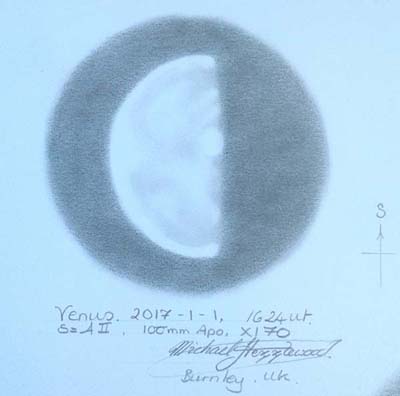 S
Venus. 2017-1-1, 1624ut.
S=AII, 100mm Apo, X170
Michael Hezzlewood.
Burnley, UK.